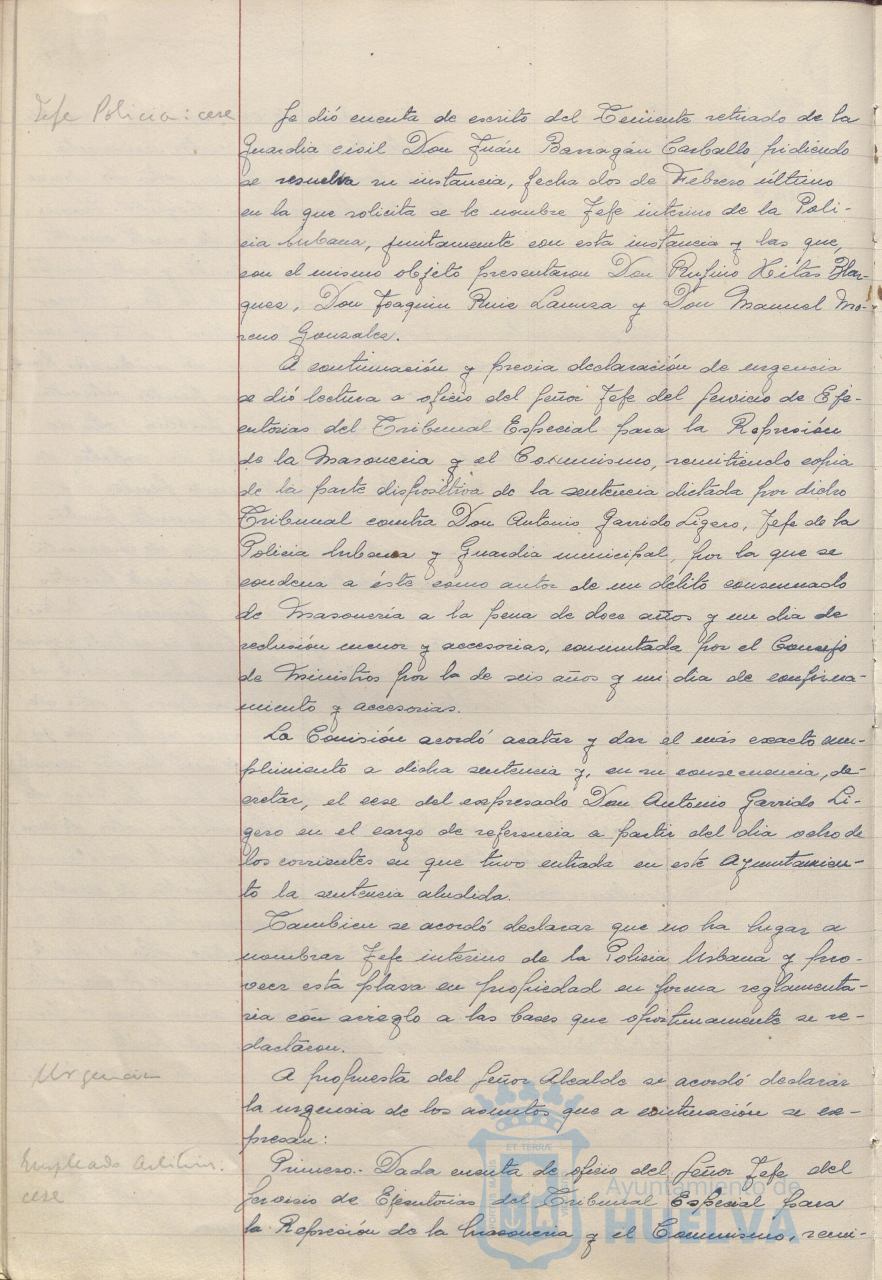 Jefe Policia: cese
Se dió cuenta de escrito del Teniente retirado de la
Guardia civil Don Juán Barragán Carballo pidiendo
se resuelva su instancia, fecha dos de Febrero último
en la que solicita se le nombre Jefe interino de la Poli-
cia Urbana, juntamente con esta instancia y las que,
con el mismo objeto presentaron Don Rufino Hitas Blaz-
quez, Don Joaquin Ruiz Lanuza y Don Manuel Mo-
reno Gonzalez.
A continuación y previa declaración de urgencia
se dió lectura a oficio del Señor Jefe del Servicio de Eje-
cutorias del Tribunal Especial para la Represión
de la Masoneria y el Comunismo, remitiendo copia
de la parte dispositiva de la sentencia dictada por dicho
Tribunal contra Don Antonio Garrido Ligero, Jefe de la
Policia Urbana y Guardia municipal, por la que se
condena a éste como autor de un delito consumado
de Masonería a la pena de doce años y un dia de
reclusión menor y accesorias, conmutada por el Consejo
de Ministros por la de seis años y un dia de confina-
miento y accesorias.
La Comisión acordó acatar y dar el más exacto cum-
plimiento a dicha sentencia y, en su consecuencia, de-
cretar, el cese del expresado Don Antonio Garrido Li-
gero en el cargo de referencia a partir del dia ocho de
los corrientes en que tuvo entrada en este Ayuntamien-
to la sentencia aludida.
Tambien se acordó declarar que no ha lugar a
nombrar Jefe interino de la Policia Urbana y pro-
veer esta plaza en propiedad en forma reglamenta-
ria con arreglo a las bases que oportunamente se re-
dactaron.
Urgencia
A propuesta del Señor Alcalde se acordó declarar
la urgencia de los asuntos que a continuación se ex-
presan:
Empleado Arbitrios.
cese
Primero.- Dada cuenta de oficio del Señor Jefe del
Servicio de Ejecutorias del Tribunal Especial para
la Represión de la Masoneria y el Comunismo, remi-
ET TERRÆ
Ayuntamiento de
HUELVA